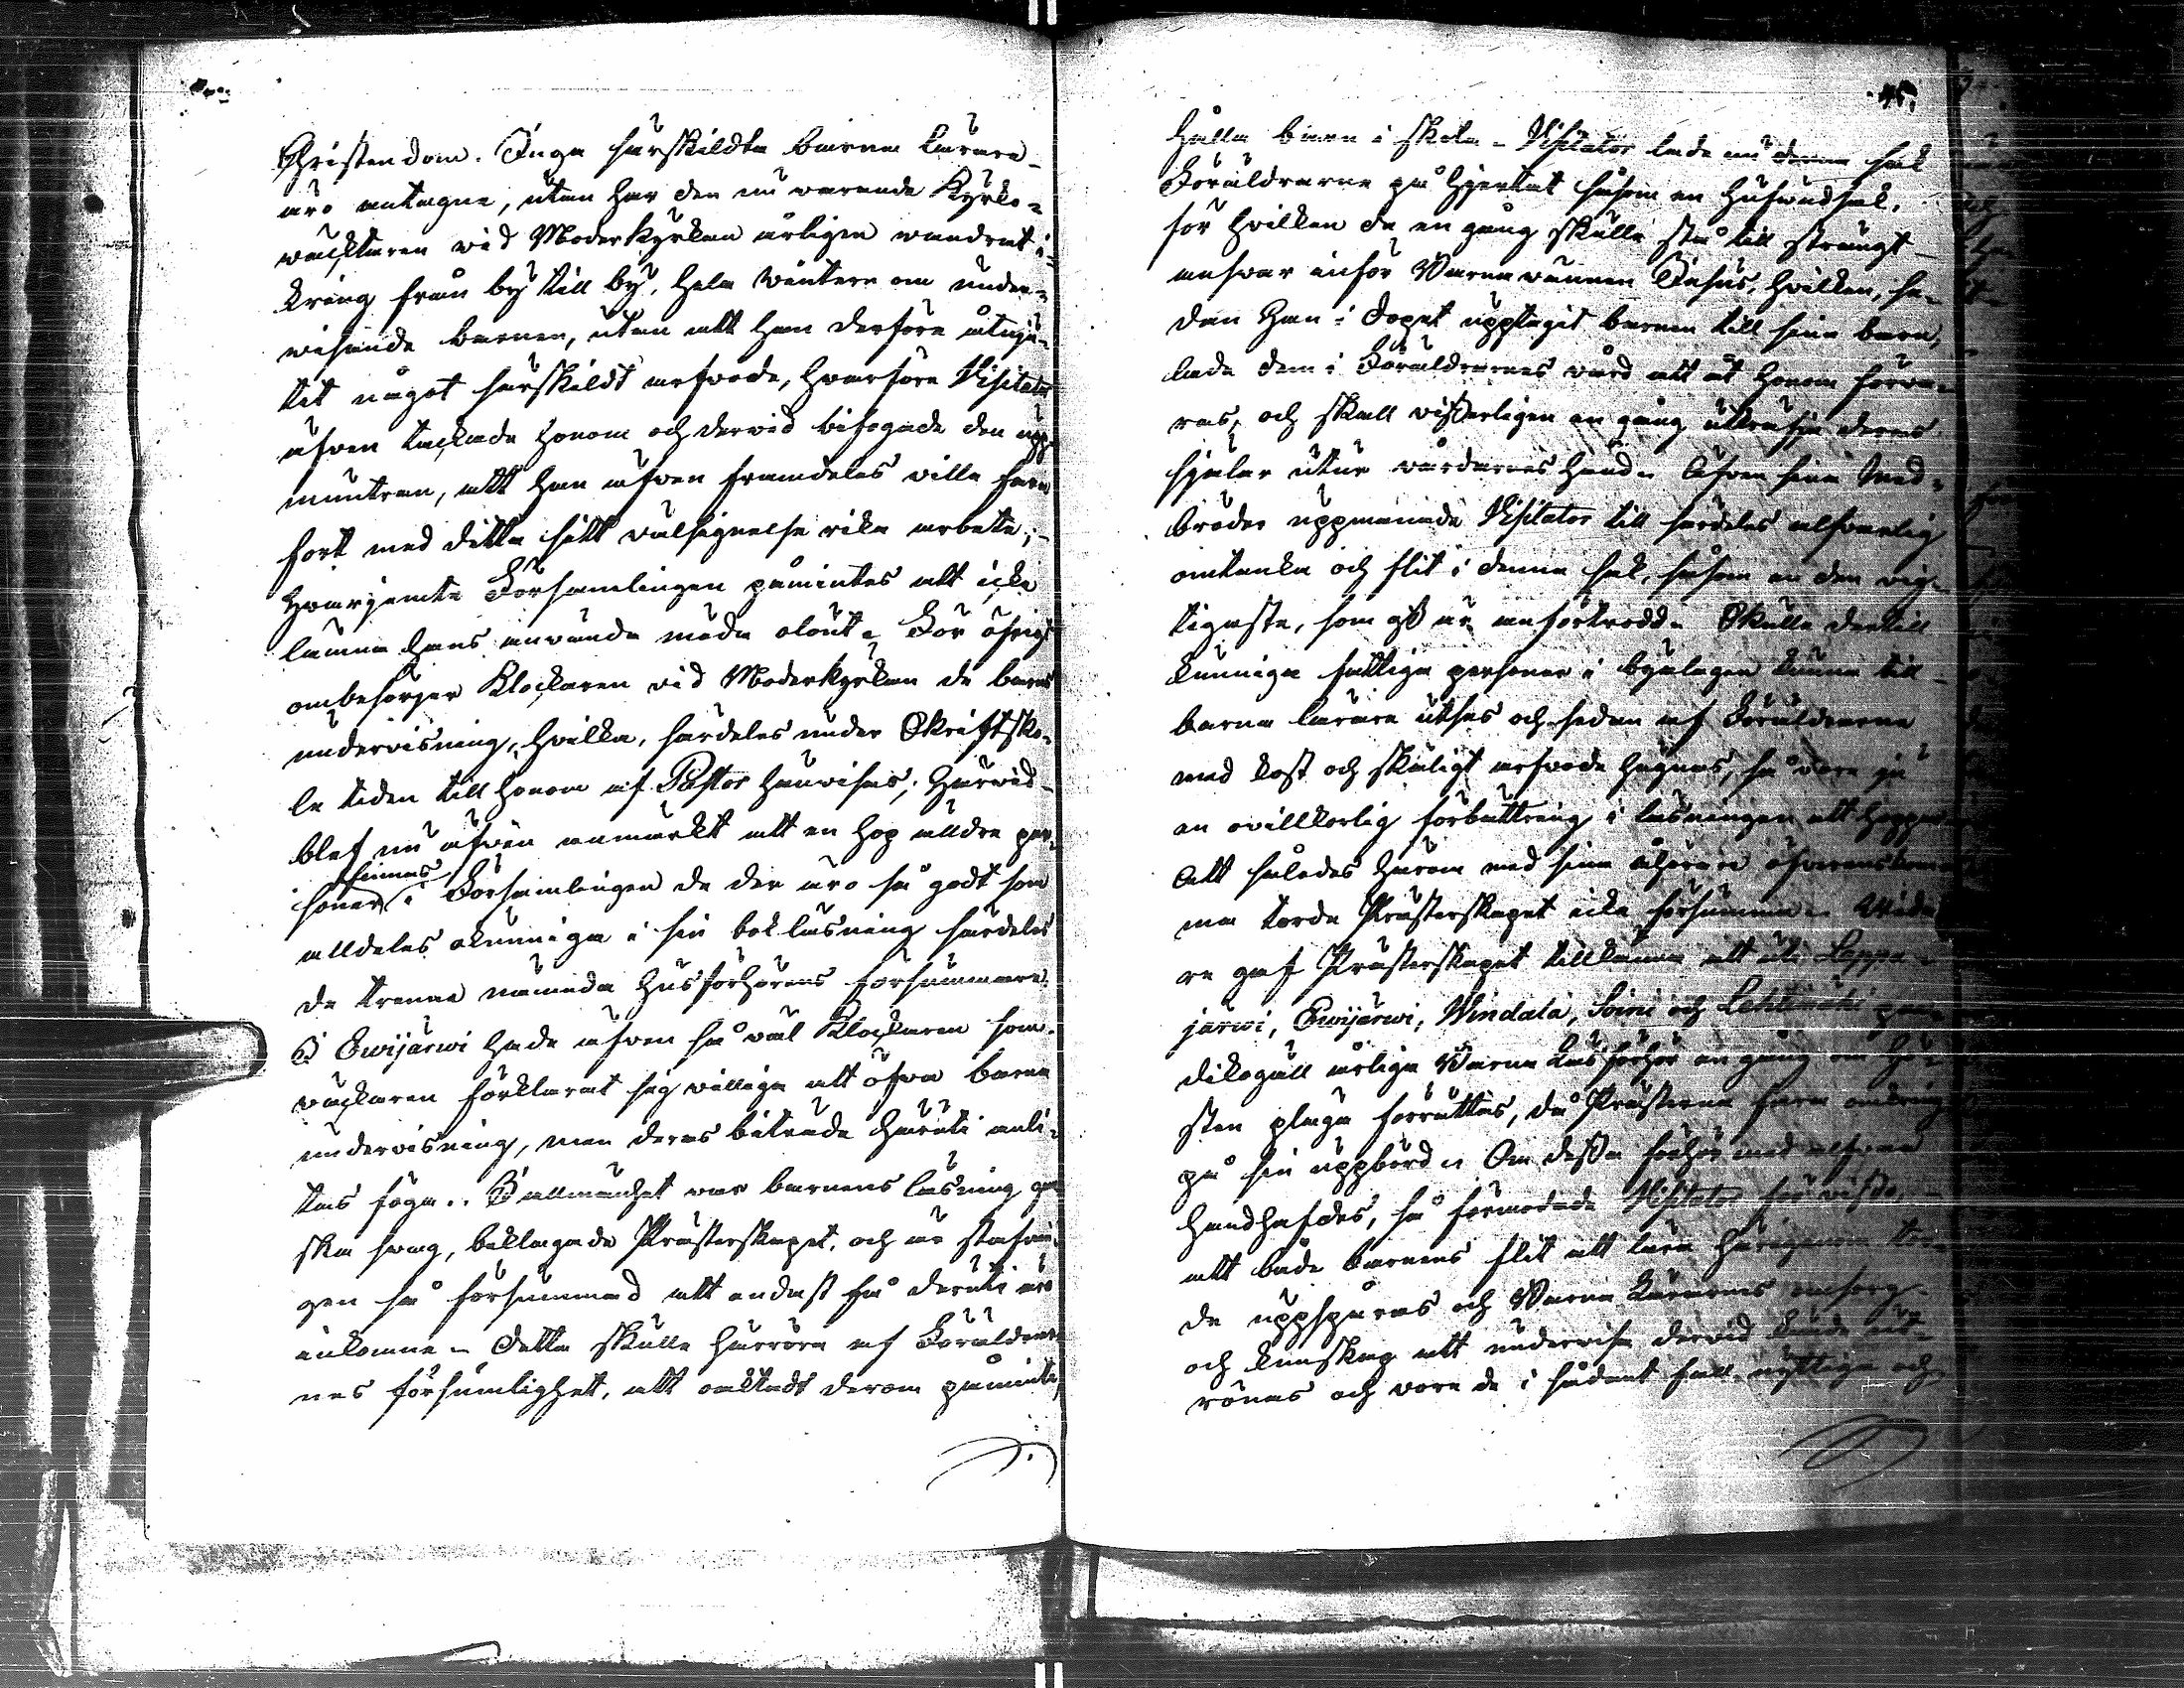 Christendom. Inga särskildta barna Lärare
äro antagne, utan har den nu warande Kyrko-
wäcktaren wid Moderkyrkan årligen wandrat i-
kring från by till by, hela wintern om under-
wisande barnen, utan att han derföre åtnju-
tit något särskildt arfvode, hvarföre Visitator
äfven tackade honom och dervid bifogade den upp-
muntran, att han äfven framdeles ville fara
fort med detta sitt välsignelse rika arbete;
Hvarjemte Församlingen påmintes att icke
lämna hans använda möda olönt. För öfrigt
ombesörjer Klockaren vid Moderkyrkan de barns
undervisning, hvilka, särdeles under Skriftsko-
le tiden till honom af Pastor hänvisas; Härvid
blef nu äfven anmärkt att en hop äldre per-
soner finnas i Församlingen de der äro så godt som
alldeles okunniga i sin bokläsning särdeles
de trenne nämnda Husförhörens försummare.
I Ewijärwi hade äfven så väl Klockaren som
väcktaren förklarat sig villige att öfva barna
undervisning, men deras biträde häruti anli-
tas föga. I allmänhet var barnens läsning gan-
ska svag, beklagade Prästerskapet, och är stafnin-
gen så försummad att endast få deruti äro
inkomne. Detta skulle härröra af Föräldrar-
nes försumlighet, att oaktadt derom påminte,
45.
hålla barn i skola. Visitator lade nu denna sak
Föräldrarne på hjertat såsom en hufvudsak,
för hvilken de en gång skulle stå till strängt
ansvar inför Barnavännen Jesus, hvilken, se-
dan Han i dopet upptagit barnen till sina barn,
lade dem i Föräldrarnes vård att åt honom förva-
ras, och skall visserligen en gång utkräfja deras
själar utur vårdarnes händ. Äfven sina Med-
bröder uppmanade Visitator till särdeles alfvarlig
omtanka och flit i denna sak, såsom en den vig-
tigaste, som oss är anförtrodd. Skulle dertill
kunniga fattiga personer i byalagen kunna till
barna lärare utses och sedan af Föräldrarna
med kost och skäligt arfvode hägnas, så vore ju
en ovillkorlig förbättring i läsningen att hoppas
Att således härom med sina åhörare öfverenskom-
ma torde Prästerskapet icke försumma. Vida-
re gaf Prästerskapet tillkänna att uti Lappa-
järwi, Ewijärwi, Windala, Soini och Lehtimäki
årliga Barna Läsförhör en gång om hö-
sten pläga förrättas, då Prästerna fara omkring
på sin uppbörd. Om dessa förhör med alfvar
handhafdes, så förmodade Visitator förvisso
att både barnens flit att lära härigenom
de uppspåras och Barna Lärarnes omsorg
och kunskap att undervisa dervid kunde ut-
rönas och vore de i sådant fall nyttiga och